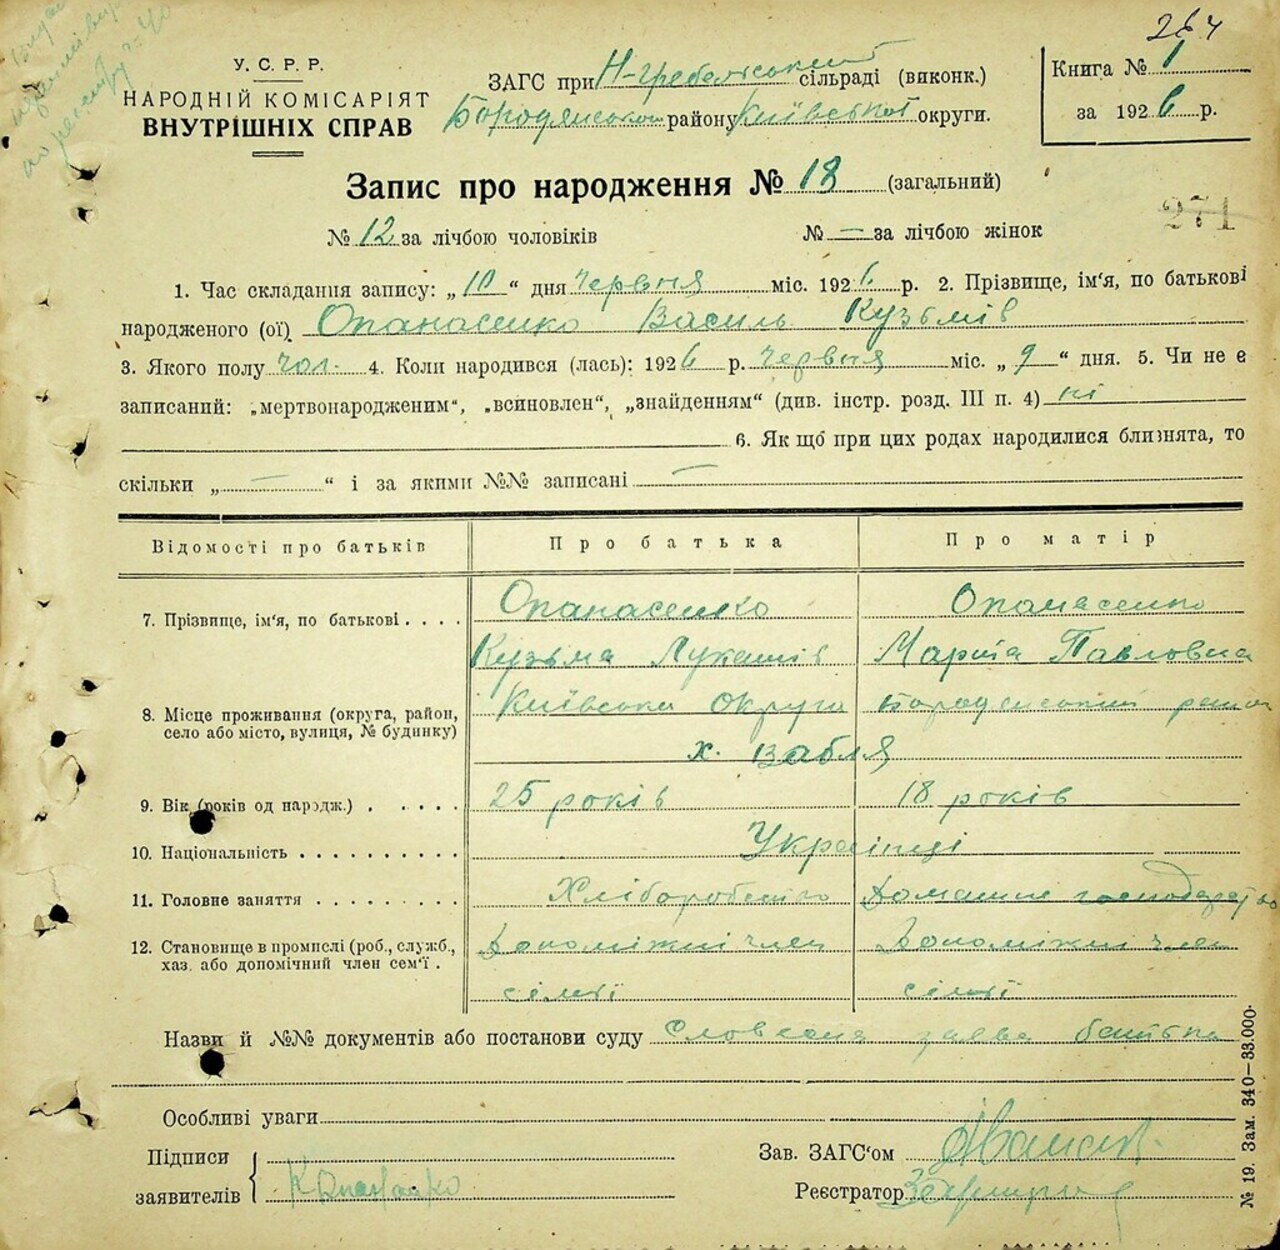 264
У. С. Р. Р.
НАРОДНІЙ КОМІСАРІЯТ
ВНУТРІШНІХ СПРАВ
ЗАГС при Н-Гребельський сільраді (виконк.)
Бородянського району Київської округи.
Книга № 1
за 1926 р.
Запис про народження № 18 (загальний)
271
№ 12 за лічбою чоловіків № — за лічбою жінок
1. Час складання запису: „10“ дня червня міс. 1926 р. 2. Прізвище, ім‘я, по батькові
народженого (ої) Опанасенко Василь Кузьмів
3. Якого полу чол. 4. Коли народився (лась): 1926 р. червня міс. „9“ дня. 5. Чи не є
записаний: „мертвонародженим“, „всиновлен“, „знайденням“ (див. інстр. розд. III п. 4) ні
6. Як що при цих родах народилися близнята, то
скільки „ — “ і за якими №№ записані —
Відомості про батьків Про батька Про матір
7. Прізвище, ім‘я, по батькові . . . . Опанасенко Опанасенко
Кузьма Лукашів Марта Павловна
8. Місце проживання (округа, район, Київська Округа Бородянський район
село або місто, вулиця, № будинку) х. Вабля
9. Вік (років од народж.) . . . . . 25 років 18 років
10. Національність . . . . . . . . . . Українці
11. Головне заняття . . . . . . . . . Хліборобство Домашнє господарство
12. Становище в промислі (роб., служб., Допоміжний член Допоміжний член
хаз. або допомічний член сем‘ї . сімї сімї
Назви й №№ документів або постанови суду Словесна заява батька
Особливі уваги
Підписи
заявителів К Опанасенко
Зав. ЗАГС‘ом
Реєстратор
№ 19. Зам. 340—33.000.